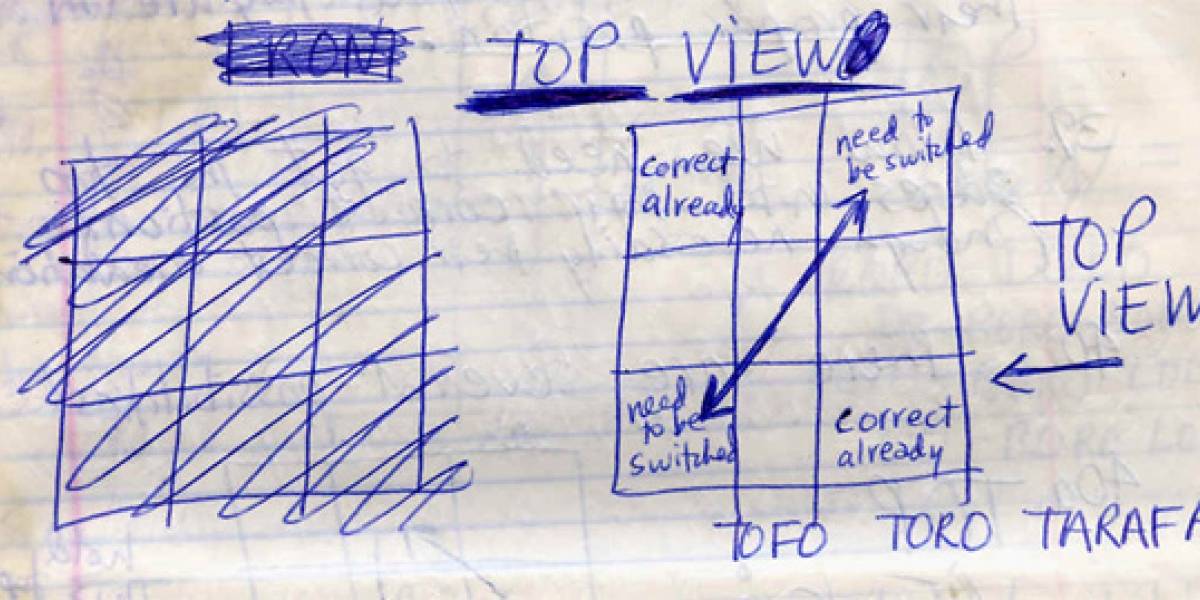 FRONT TOP VIEW
correct
already
need to
be switched
TOP
VIEW
need
to be
switched
correct
already
TOFO TORO TARAFA